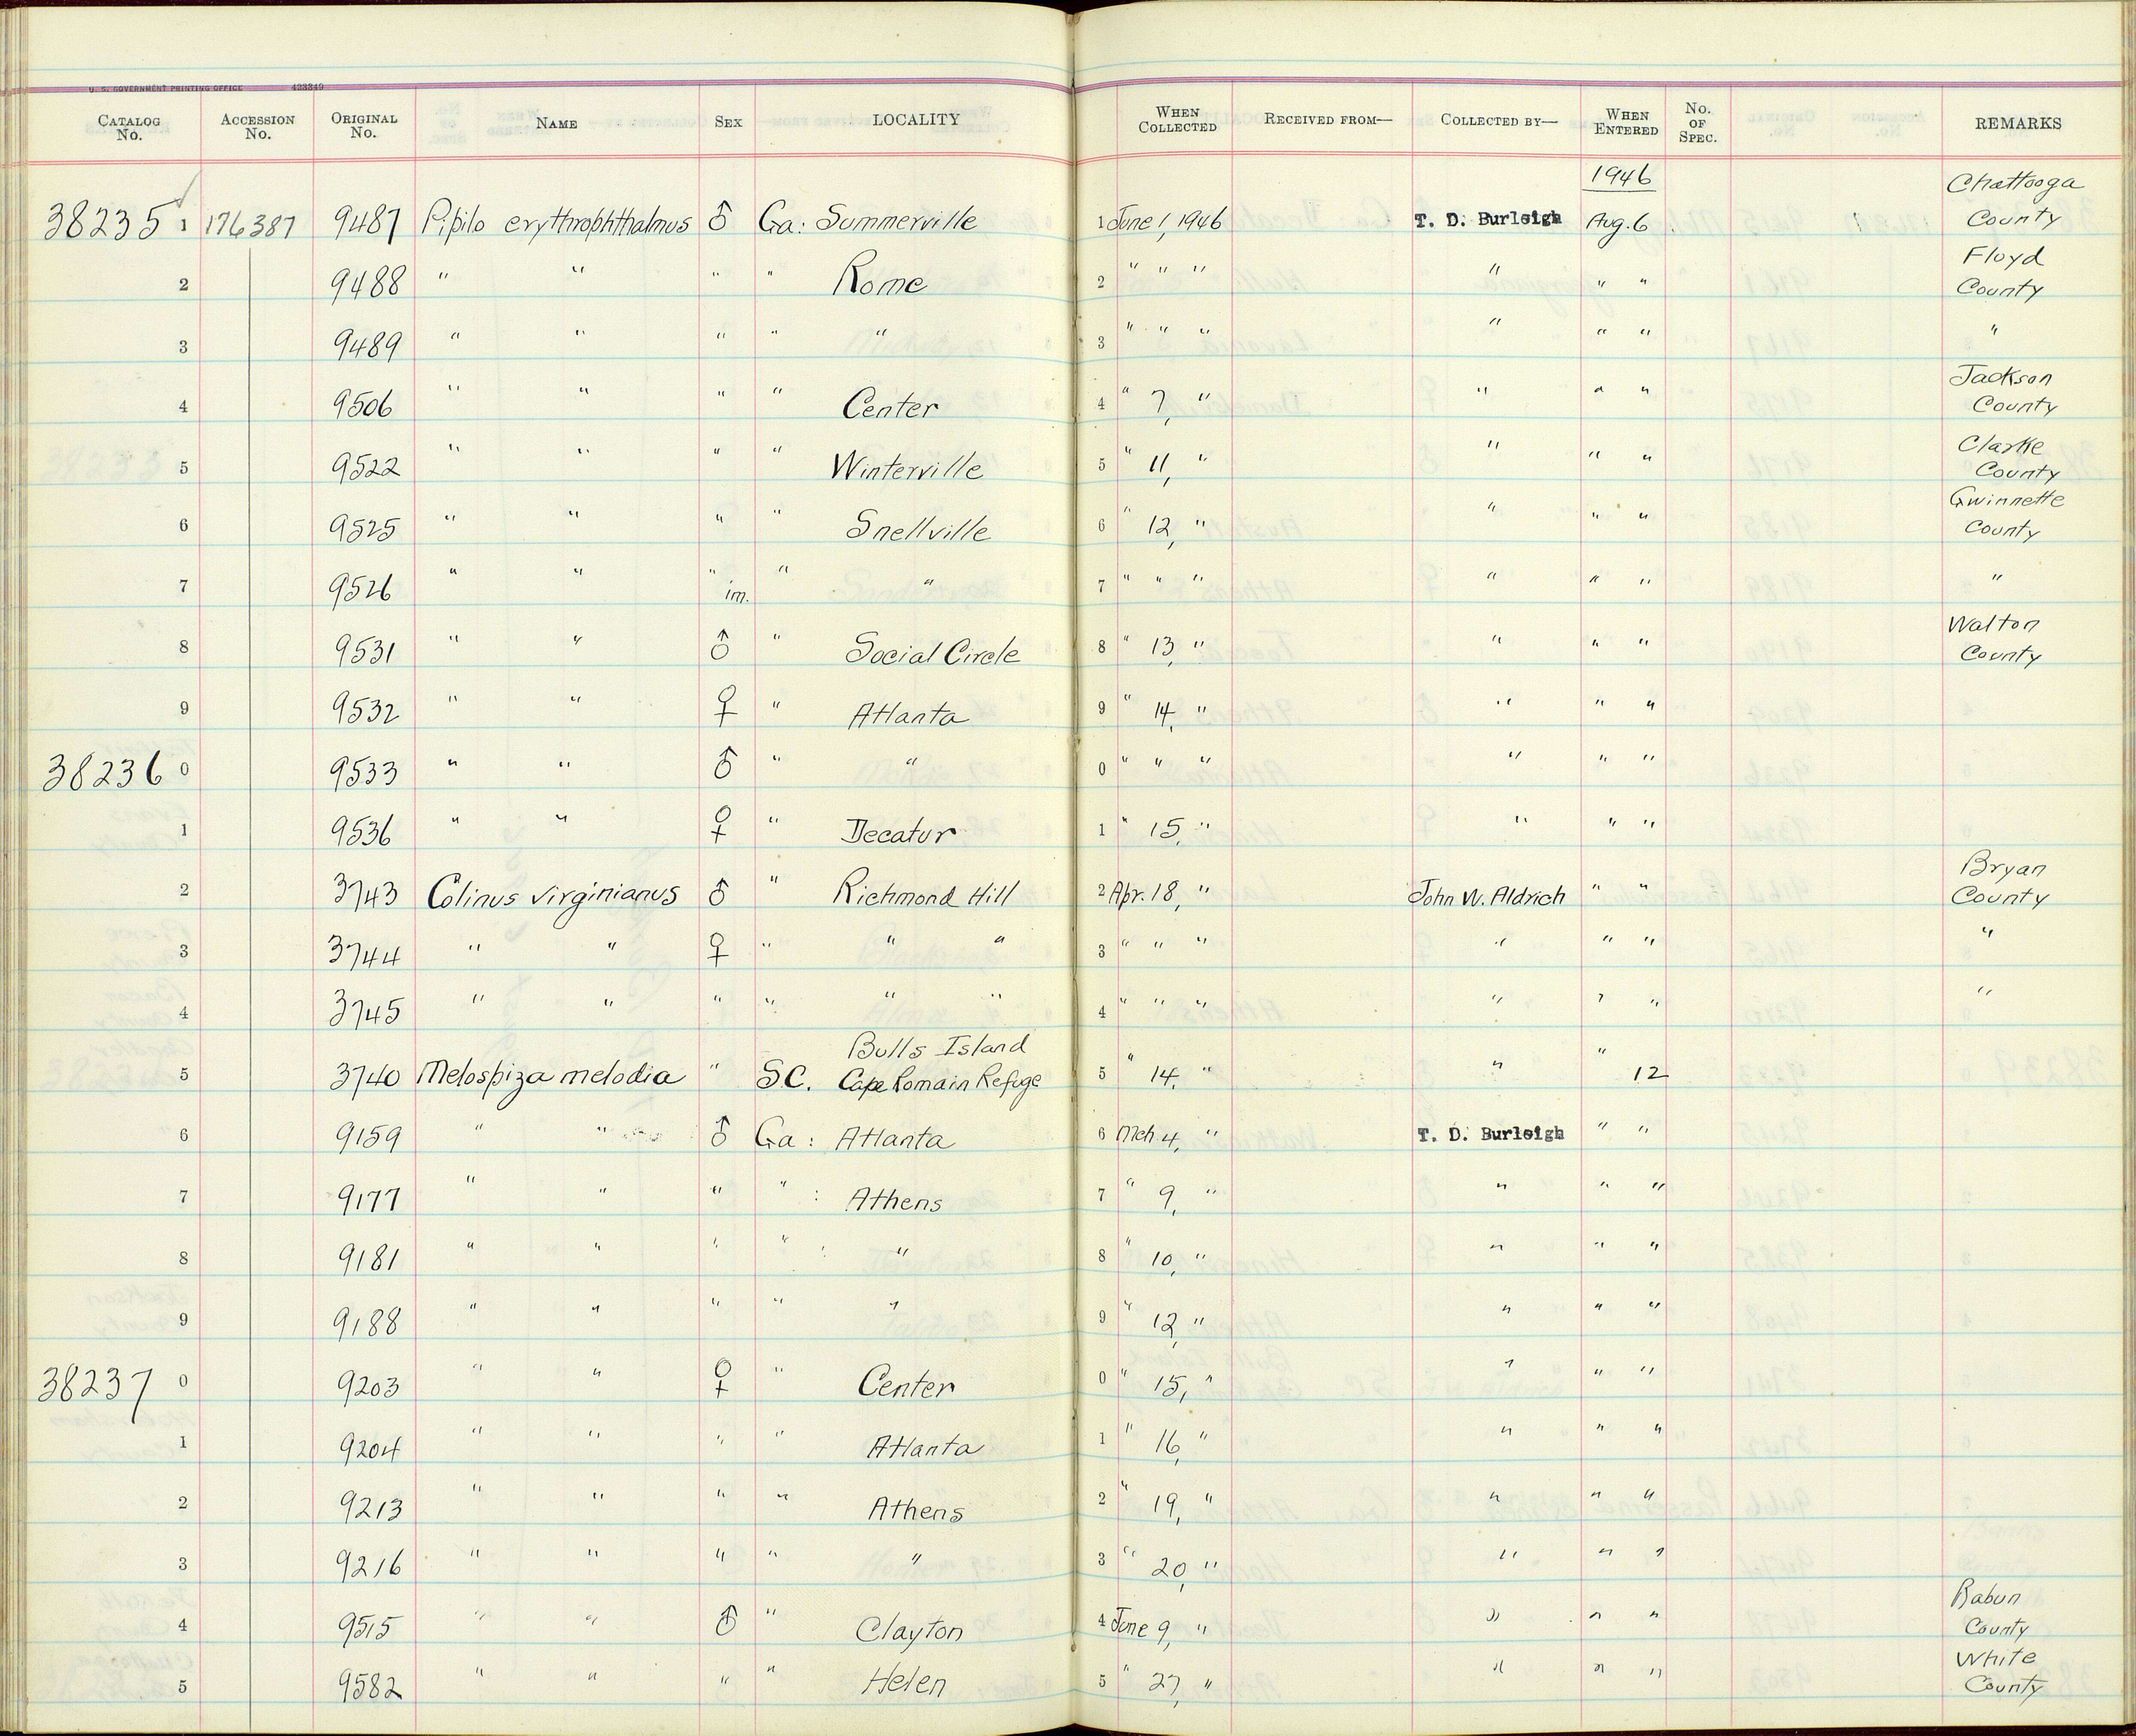 U. S. GOVERNMENT PRINTING OFFICE 433349
CATALOG No. ACCESSION No. ORIGINAL No. NAME SEX LOCALITY WHEN COLLECTED RECEIVED FROM— COLLECTED BY— WHEN ENTERED No. OF SPEC. REMARKS
1946 Chattooga
38235 1 176387 9487 Pipilo erythrophthalmus ♂ Ga: Summerville 1 June 1, 1946 T. D. Burleigh Aug. 6 County
Floyd
2 9488 " " " " Rome 2 " " " " " " County
3 9489 " " " " " 3 " " " " " " "
Jackson
4 9506 " " " " Center 4 " 7, " " " " County
Clarke
5 9522 " " " " Winterville 5 " 11, " " " " County
Gwinnette
6 9525 " " " " Snellville 6 " 12, " " " " County
7 9526 " " " im. " " 7 " " " " " " "
Walton
8 9531 " " ♂ " Social Circle 8 " 13, " " " " County
9 9532 " " ♀ " Atlanta 9 " 14, " " " "
38236 0 9533 " " ♂ " " 0 " " " " " "
1 9536 " " ♀ " Decatur 1 " 15, " " " "
Bryan
2 3743 Colinus virginianus ♂ " Richmond Hill 2 Apr. 18, " John W. Aldrich " " County
3 3744 " " ♀ " " " 3 " " " " " " "
4 3745 " " " " " " 4 " " " " " " "
Bulls Island
5 3740 Melospiza melodia " S.C. Cape Romain Refuge 5 " 14, " " " 12
6 9159 " " ♂ Ga: Atlanta 6 Mch. 4, " T. D. Burleigh " "
7 9177 " " " " : Athens 7 " 9, " " " "
8 9181 " " " " : " 8 " 10, " " " "
9 9188 " " " " " 9 " 12, " " " "
38237 0 9203 " " ♀ " Center 0 " 15, " " " "
1 9204 " " " " Atlanta 1 " 16, " " " "
2 9213 " " " " Athens 2 " 19, " " " "
3 9216 " " " " " 3 " 20, " " " "
Rabun
4 9515 " " ♂ " Clayton 4 June 9, " " " " County
White
5 9582 " " " " Helen 5 " 27, " " " " County